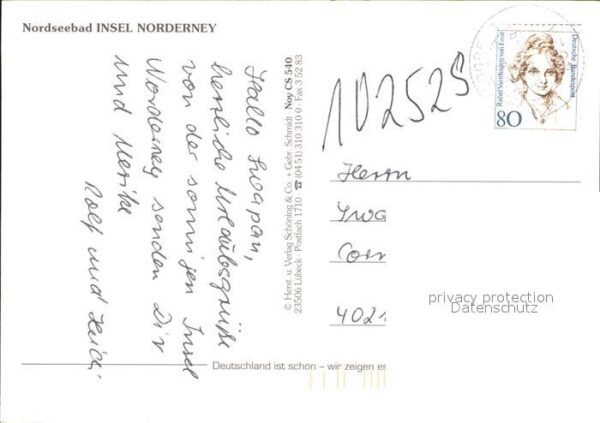 Nordseebad INSEL NORDERNEY
Hallo Swapan,
herzliche Urlaubsgrüße
von der sonnigen Insel
Norderney senden Dir
und Merike
Rolf und Heidi
© Herst. u. Verlag Schöning & Co. + Gebr. Schmidt Noy CS 540
23506 Lübeck · Postfach 1710 ☎ (04 51) 310 310 0 · Fax 3 52 83
102528
Rahel Varnhagen von Ense
Deutsche Bundespost
80
Herrn
Swa
Cor
4021
privacy protection
Datenschutz
Deutschland ist schön – wir zeigen es